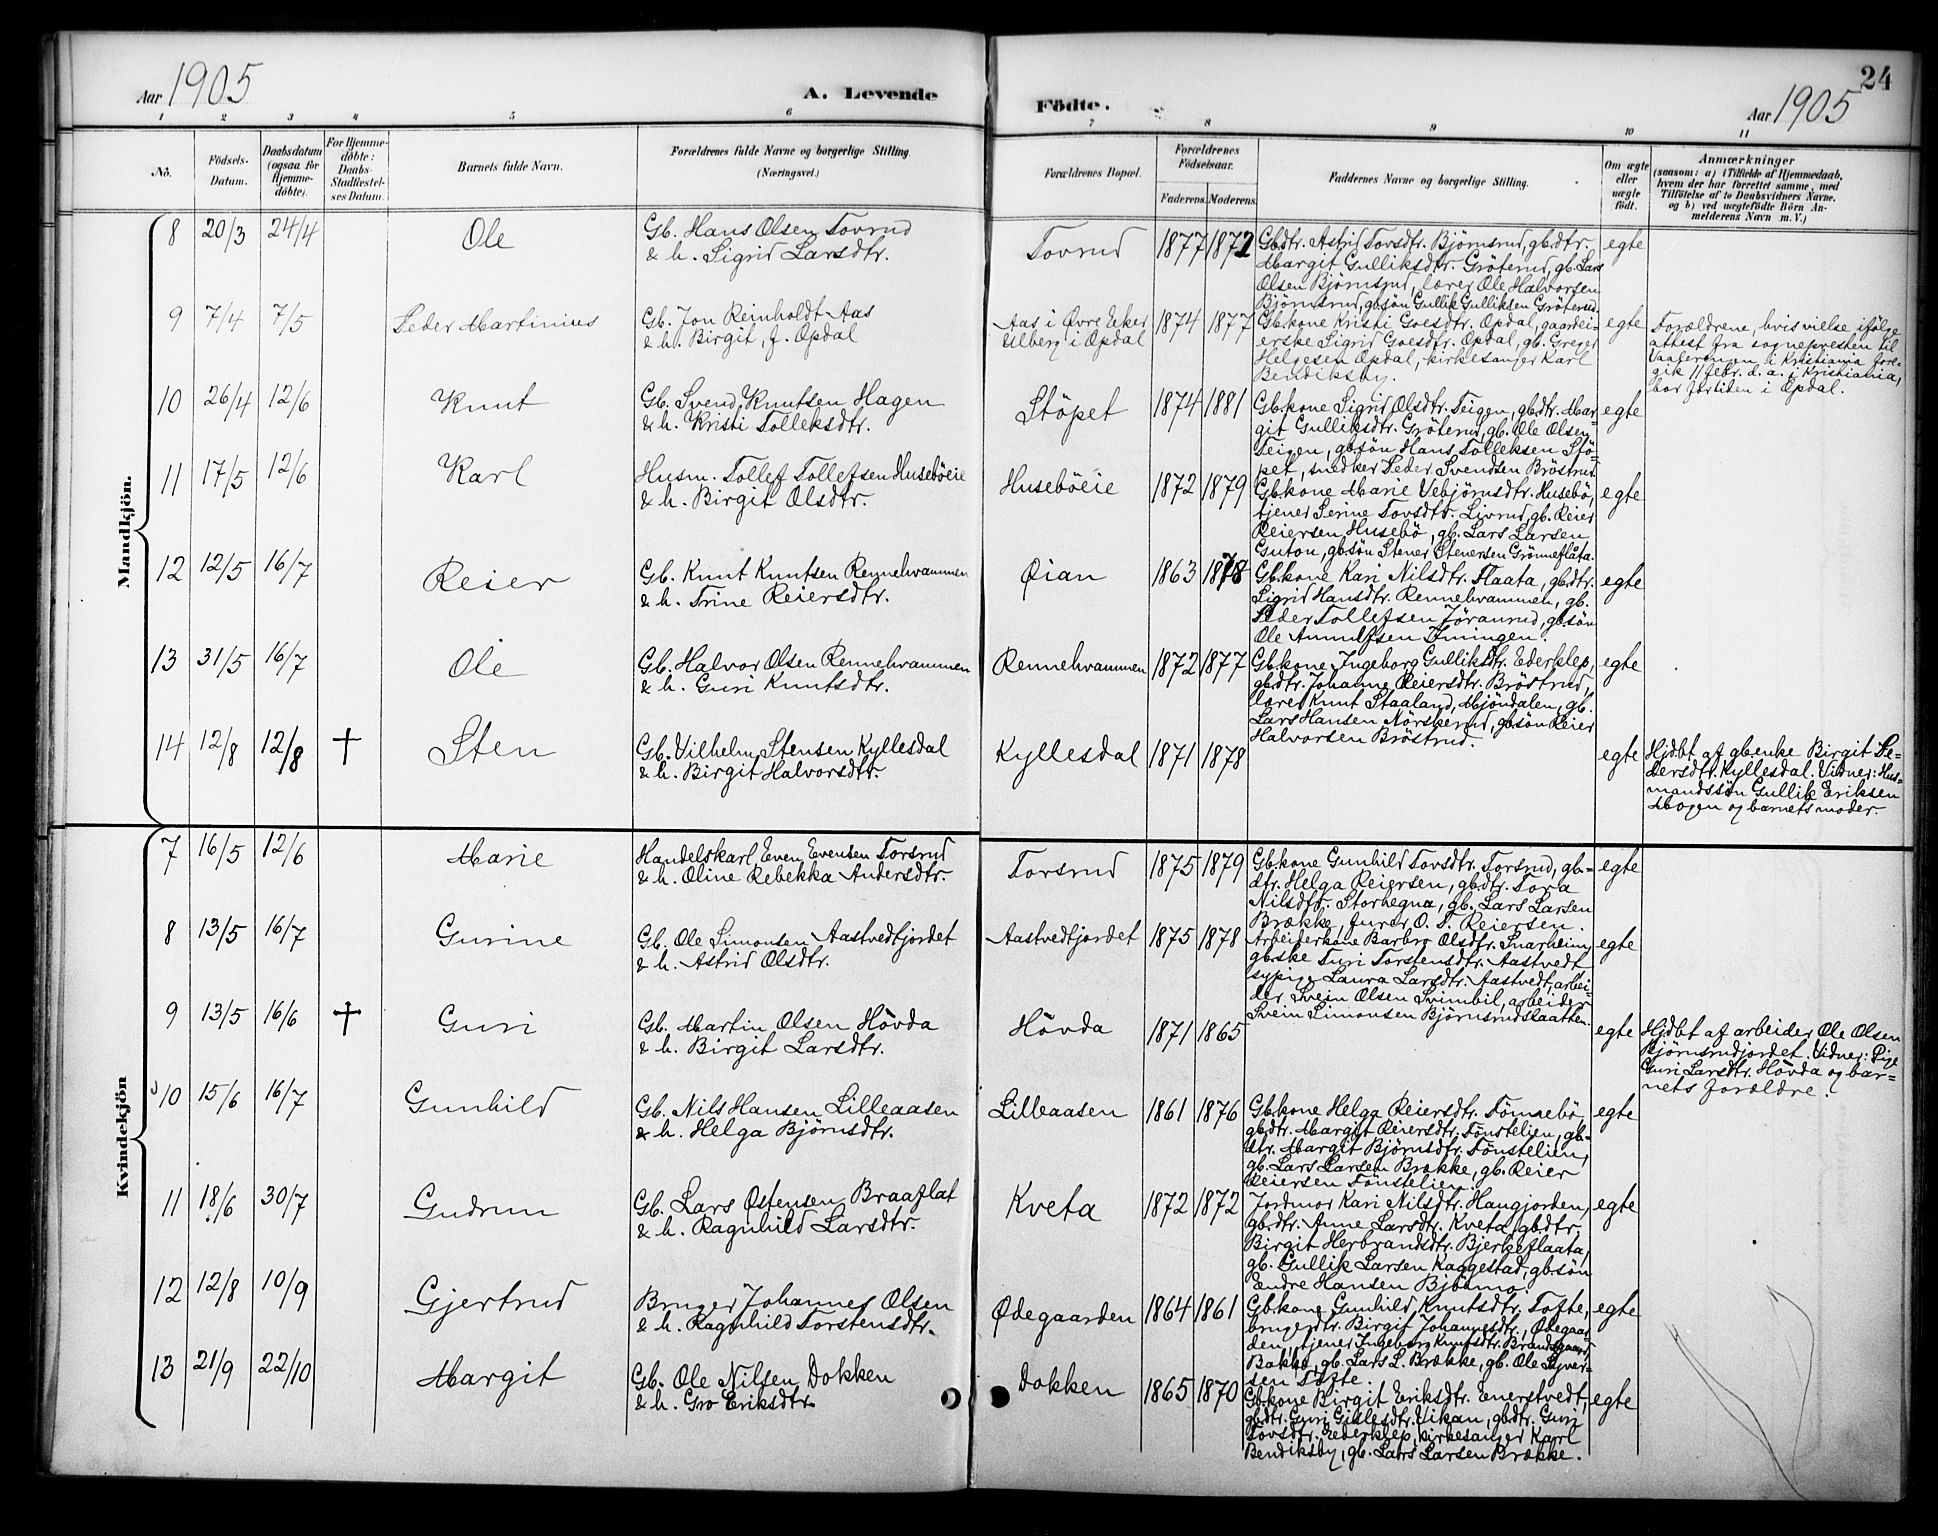 24
Aar 1905 A. Levende Födte. Aar 1905
1 2 3 4 5 6 7 8 9 10 11
No. Födsels-Datum. Daabsdatum (ogsaa for Hjemme-döbte). For Hjemme-döbte: Daabs-Stadfæstel-ses Datum. Barnets fulde Navn. Forældrenes fulde Navne og borgerlige Stilling. (Næringsvei.) Forældrenes Bopæl. Forældrenes Födselsaar. Faderens. Moderens. Faddernes Navne og borgerlige Stilling. Om ægte eller uægte födt. Anmærkninger
(saasom: a) i Tilfælde af Hjemmedaab,
hvem der har forrettet samme, med
Tilföielse af to Daabsvidners Navne,
og b) ved uægtefödte Börn An-
melderens Navn m. V.)
Mandkjön.
8 20/3 24/4 Ole Gb. Hans Olsen Tovrud
& h. Sigrid Larsdtr.
Tovrud 1877 1872 Gbdtr. Astrid Tovsdtr. Björnsrud, gbdtr. egte
Margit Gulliksdtr. Gröterud, gb. Lars
Olsen Björnsrud, lærer Ole Halvorsen
Björnsrud, gbsön Gullik Gulliksen Gröterud.
9 7/4 7/5 Peder Martinius Gb. Jon Reinholdt Aas
& h. Birgit, f. Opdal
Aas i Øvre Eker
Ulberg i Opdal
1874 1877 Gbkone Kristi Goesdtr. Opdal, gaardei- egte
erske Sigrid Goesdtr. Opdal, gb. Greger
Helgesen Opdal, kirkesanger Karl
Bendiksby.
Forældrene, hvis vielse ifölge
attest fra sognepresten til
Vaalerengen i Kristiania fore-
gik 11 febr. d. a. i Kristiania,
bor fortiden i Opdal.
10 26/4 12/6 Knut Gb. Svend Knutsen Hagen
& h. Kristi Tolleksdtr.
Stöpet 1874 1881 Gbkone Sigrid Olsdtr. Teigen, gbdtr. Mar- egte
git Gulliksdtr. Gröterud, gb. Ole Olsen
Teigen, gbsön Hans Tolleksen Stö-
pet, snedker Peder Svendsen Bröstrud.
11 17/5 12/6 Karl Husm. Tollef Tollefsen Huseböeie
& h. Birgit Olsdtr.
Huseböeie 1872 1879 Gbkone Marie Vebjörnsdtr. Husebö, egte
tjener Serine Tovsdtr. Livrud, gb. Reier
Reiersen Husebö, gb. Lars Larsen
Guton, gbsön Stener Stenersen Grönneflåta.
12 12/5 16/7 Reier Gb. Knut Knutsen Rennehvammen
& h. Trine Reiersdtr.
Øian 1863 1878 Gbkone Kari Nilsdtr. Flaata, gbdtr. egte
Sigrid Hansdtr. Rennehvammen, gb.
Peder Tollefsen Jöranrud, gbsön
Ole Anundsen
13 31/5 16/7 Ole Gb. Halvor Olsen Rennehvammen
& h. Guri Knutsdtr.
Rennehvammen 1872 1877 Gbkone Ingeborg Gulliksdtr. Ederklep, egte
gbdtr. Johanne Reiersdtr. Bröstrud,
lærer Knut Staaland, Mjöndalen, gb.
Lars Hansen Nörsterud, gbsön Reier
Halvorsen Bröstrud.
14 12/8 12/8 † Sten Gb. Vilhelm Stensen Kyllesdal
& h. Birgit Halvorsdtr.
Kyllesdal 1871 1878 egte
Hjdbt af gbenke Birgit Pe-
dersdtr. Kyllesdal. Vidner: Hus-
mandssön Gullik Eriksen
Mogen og barnets moder.
Kvindekjön
7 16/5 12/6 Marie Handelskarl Even Evensen Torsrud
& h. Oline Rebekka Andersdtr.
Torsrud 1875 1879 Gbkone Gunhild Tovsdtr. Torsrud, gb- egte
dtr. Helga Reiersen, gbdtr. Tora
Nilsdtr. Storhegna, gb. Lars Larsen
Brække, furer O. T. Reiersen.
8 13/5 16/7 Gurine Gb. Ole Simonsen Aastvedtjordet
& h. Astrid Olsdtr.
Aastvedtjordet 1875 1878 Arbeiderkone Barbro Olsdtr. Snarheim, egte
gbeske Turi Torstensdtr. Aastvedt
sypige Laura Larsdtr. Aastvedt, arbei-
der Svein Olsen Svimbil, arbeider
Svein Simonsen Björnsrudslaatten.
9 13/5 16/6 † Guri Gb. Martin Olsen Hövda
& h. Birgit Larsdtr.
Hövda 1871 1865 egte
Hjdbt af arbeider Ole Olsen
Björnsrudjordet. Vidner: Pige
Guri Larsdtr. Hövda og bar-
nets forældre.
10 15/6 16/7 Gunhild Gb. Nils Hansen Lilleaasen
& h. Helga Björnsdtr.
Lilleaasen 1861 1876 Gbkone Helga Reiersdtr. Tönnebö, egte
gbdtr. Margit Reiersdtr. Tönstelien, gb-
dtr. Margit Björnsdtr. Tönstelien,
gb. Lars Larsen Brække, gb. Reier
Reiersen Tönstelien.
11 18/6 30/7 Gudrun Gb. Lars Østensen Braaflat
& h. Ragnhild Larsdtr.
Kveta 1872 1872 Jordmor Kari Nilsdtr. Haugjorden, egte
gbdtr. Anne Larsdtr. Kveta, gbdtr.
Birgit Herbrandsdtr. Bjerkeflaata,
gb. Gullik Larsen Kaggestad, gbsön
Endre Hansen Björmo.
12 12/8 10/9 Gjertrud Bruger Johannes Olsen
& h. Ragnhild Torstensdtr.
Ødegaarden 1864 1861 Gbkone Gunhild Knutsdtr. Tofte, egte
brugerdtr. Birgit Johannesdtr., Ødegaar-
den, tjener Ingeborg Knutsdtr. Brandsgaard,
Bakke, gb. Lars L. Brække, gb. Ole Syver-
sen Tofte.
13 21/9 22/10 Margit Gb. Ole Nilsen Dokken
& h. Gro Eriksdtr.
Dokken 1865 1870 Gbkone Birgit Eriksdtr. Enerstvedt, egte
gbdtr. Guri Gislesdtr. Vikan, gbdtr. Guri
Tovsdtr. Ederklep, kirkesanger Karl
Bendiksby, gb. Lars Larsen Brække.